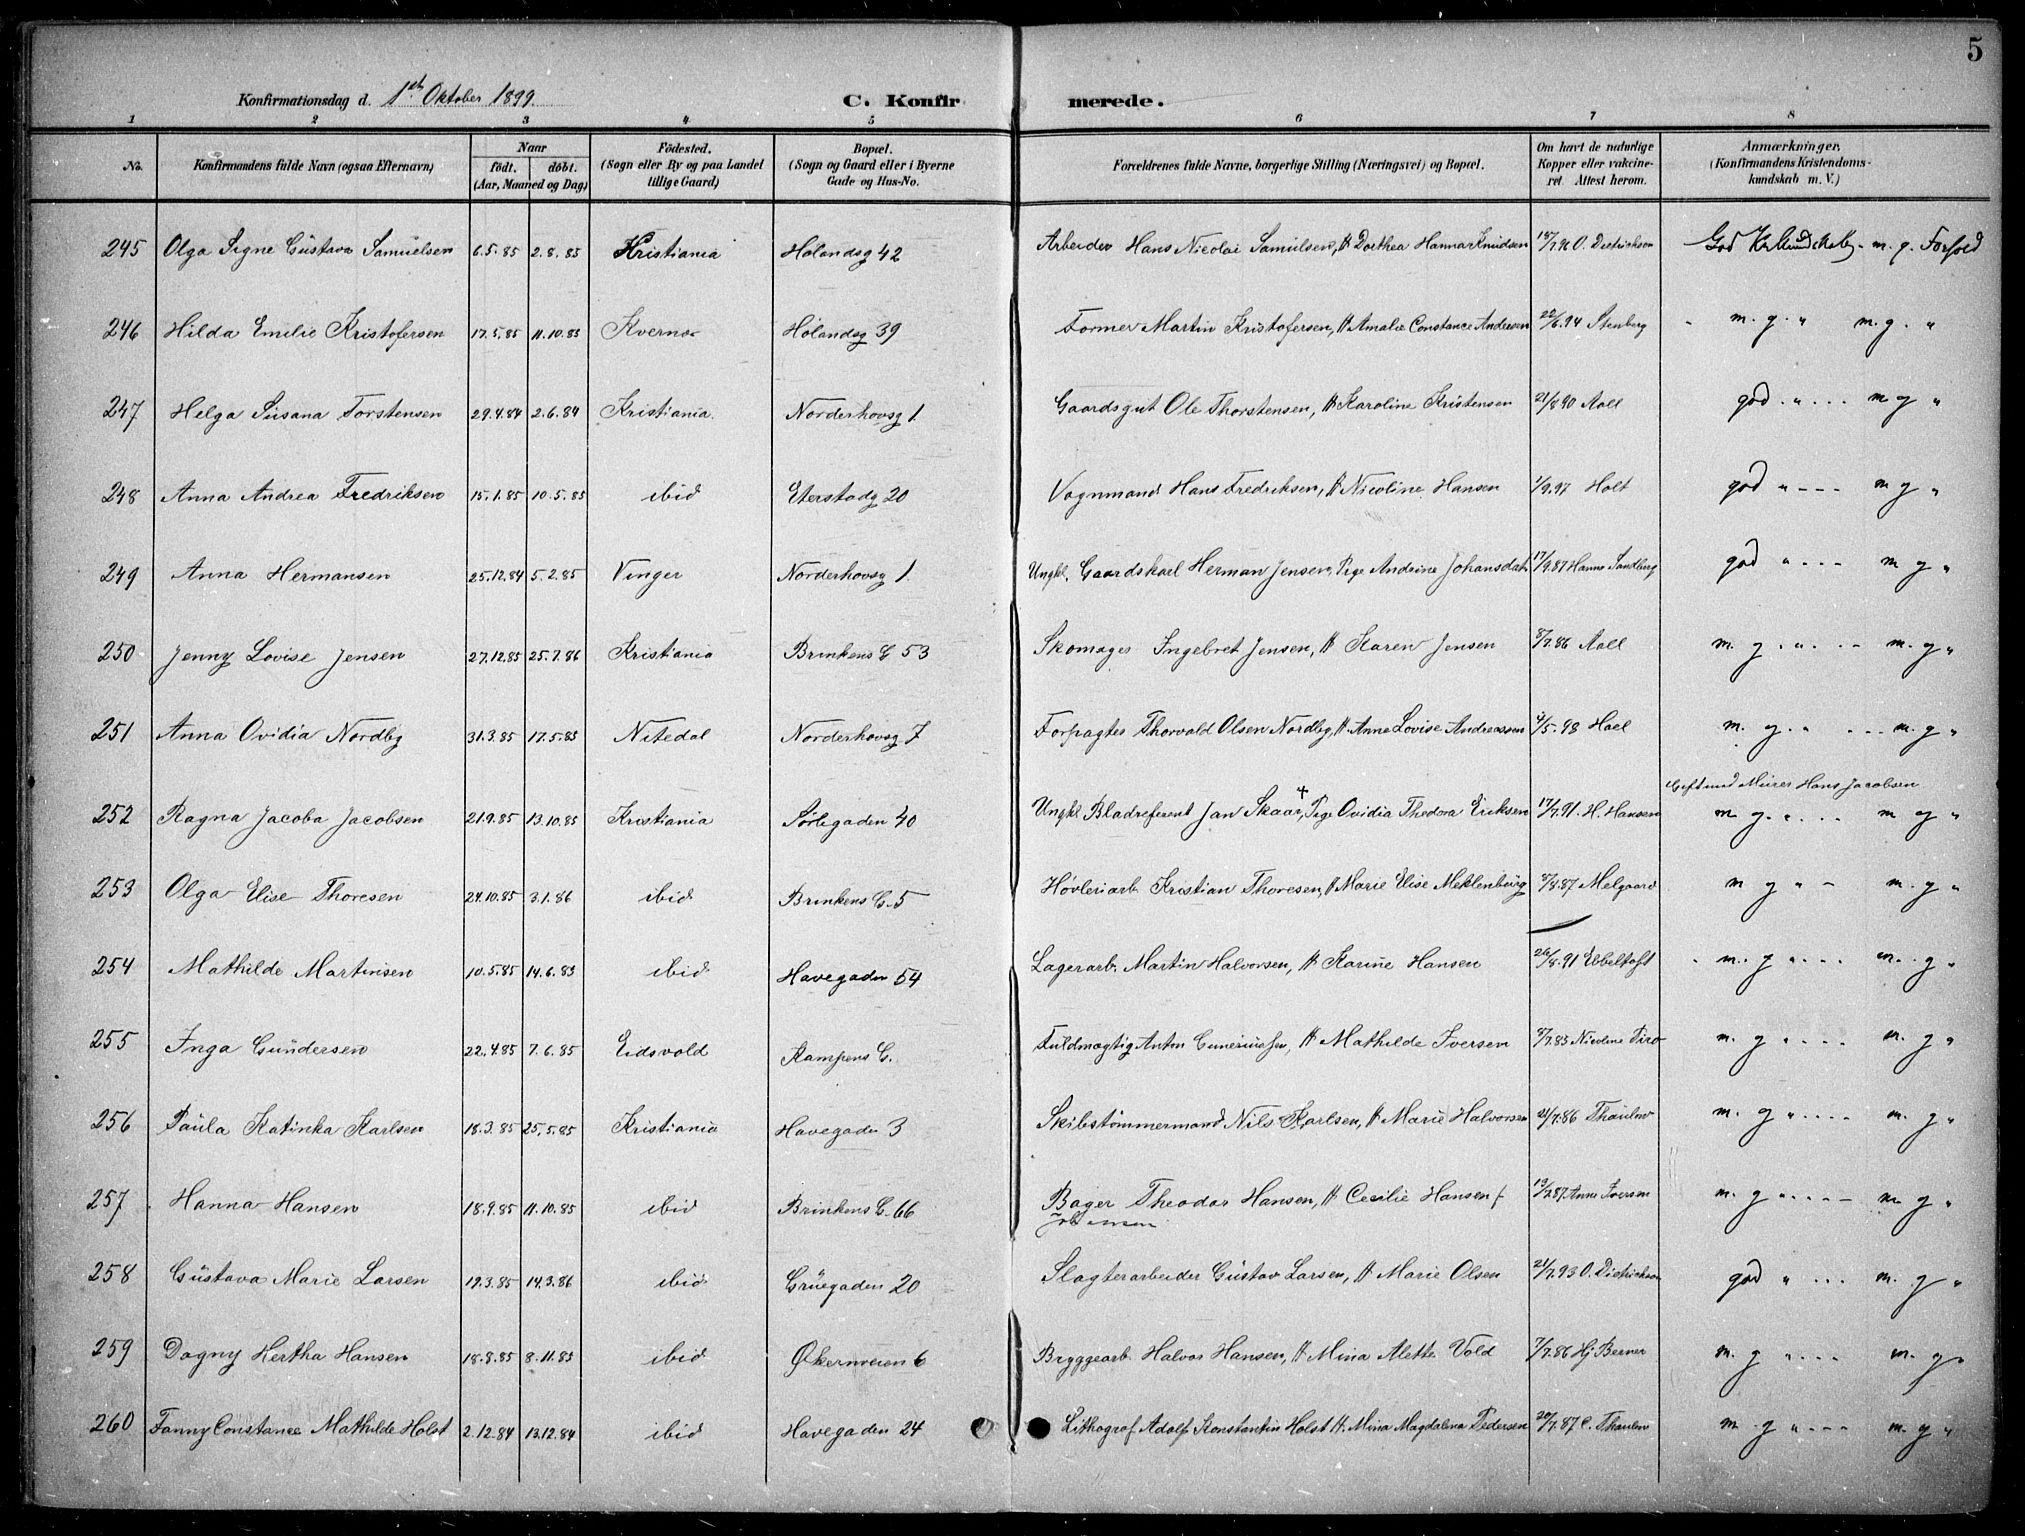 5
Konfirmationsdag d. 1ste Oktober 1899. C. Konfir merede.
1 2 3 4 5 6 7 8
No. Konfirmandens fulde Navn (ogsaa Efternavn) Naar født. døbt. (Aar, Maaned og Dag) Fødested. (Sogn eller By og paa Landet tillige Gaard) Bopæl. (Sogn og Gaard eller i Byerne Gade og Hus-No. Forældrenes fulde Navne, borgerlige Stilling (Næringsvei) og Bopæl. Om havt de naturlige Kopper eller vakcineret. Attest herom. Anmærkninger. (Konfirmandens Kristendomskundskab m. V.)
245 Olga Signe Gustava Samuelsen 6.5.85 2.8.85 Kristiania Hølandsg 42 Arbeider Hans Nicolai Samuelsen, H Dorthea Hanna Knudsen 18/7.90 O. Dietrichson God m. g. Forhold
246 Hilda Emilie Kristofersen 17.5.85 11.10.85 Kvernes Hølandsg 39 Former Martin Kristofersen, H Amalie Constance Andersen 22/6.94 Stenberg m. g. " m. g. "
247 Helga Susana Torstensen 29.4.84 2.6.84 Kristiania Norderhovsg 1 Gaardsgut Ole Thorstensen, H Karoline Kristensen 21/8.90 Aall god " m g "
248 Anna Andrea Fredriksen 15.1.85 10.5.85 ibid Eterstadg 20 Vognmand Hans Fredriksen, H Nicoline Hansen 1/9.97 Holt god " m g "
249 Anna Hermansen 25.12.84 5.2.85 Vinger Norderhovsg 1. Ungkl. Gaardskarl Herman Jensen, Pige Andrine Johansdat. 17/9.87 Hanna Sandberg god " m g "
250 Jenny Lovise Jensen 27.12.85 25.7.86 Kristiania Brinkens G 53 Skomager Ingebret Jensen, H Karen Jensen 8/7.86 Aall m. g. " m. g "
251 Anna Ovidia Nordby 31.3.85 17.5.85 Nitedal Norderhovsg 7 Forpagter Thorvald Olsen Nordby, H Anne Lovise Andreassen 3/5.98 Hael m. g. " m. g "
Gift med Murer Hans Jacobsen
252 Ragna Jacoba Jacobsen 21.9.85 13.10.85 Kristiania Sørligaden 40 Ungkl Bladreferent Jan Skaar +, Pige Ovidia Thedora Eriksen 17/7.91. H. Hansen m g. " m g "
253 Olga Elise Thoresen 24.10.85 3.1.86 ibid Brinkens G. 5 Høvleriarb. Kristian Thoresen, H Marie Elise Meklenburg 8/8.87 Melgaard m g " m. g "
254 Mathilde Martinsen 10.5.85 14.6.85 ibid Havegaden 54 Lagerarb. Martin Halvorsen, H Karine Hansen 26/8.91 Ebbeltoft m. g " m. g "
255 Inga Gundersen 22.4.85 7.6.85 Eidsvold Kampens G. Fuldmægtig Anton Gunerius[en], H Mathilde Iversen 8/7.85 Nicoline m. g " m. g "
256 Paula Katinka Karlsen 18.3.85 25.5.85 Kristiania Havegaden 3 Skibstømmermand Nils Karlsen, H Marie Halvorsen 21/7.86 Thaulow m. g " m. g "
257 Hanna Hansen 18.9.85 11.10.85 ibid Brinkens G. 66 Bager Theodor Hansen, H Cecilie Hansen f. 13/7.87 Anne Iversen m. g " m g "
258 Gustava Marie Larsen 19.3.85 14.3.86 ibid Grüegaden 20 Slagterarbeider Gustav Larsen, H Marie Olsen 21/7.93 O. Dietrichson god " m. g "
259 Dagny Hertha Hansen 18.8.85 8.11.85 ibid Økernveien 6 Bryggearb. Halvor Hansen, H Mina Alette Vold 7/7.86 Hj. Berner m. g " m. g "
260 Fanny Constance Mathilde Holst 2.12.84 13.12.84 ibid Havegaden 24 Lithograf Adolf Konstantin Holst H. Mina Magdalena Pedersen 20/7.87 C. Thaulow m. g " m. g "